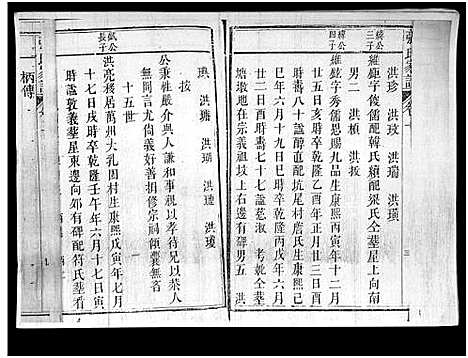 洪珍 洪玟 洪瑞 洪璜
四子
維龐字俊儒配韓氏頫配梁氏仝塟星上向南
洪楨 洪振
維鉉字秀儒恩賜九品生康熙丙寅年十二月
廿五日亥時卒乾隆乙酉年正月廿三日酉
時壽八十諡醇直配坑尾村唐氏生康熙己
巳年六月十九日巳時卒乾隆丙戌年六月
廿二日酉時壽七十七諡慈淑 考乾仝塟
塘墩地在宗義祖坟上右邊有碑男五 洪
洪瑞 洪璊 洪璦
按
公秉性嚴介與人謙和事親以孝待兄以恭人
無間言尤尚義好善捐修宗祠頟糞無吝
十五世
長子
洪亮移居萬州大乳因村生康熙戊寅年七月
十七日戌時卒乾隆壬午年六月十七日寅
時諡敦義塟星東邊向郊有碑配符氏塟看
柄傳